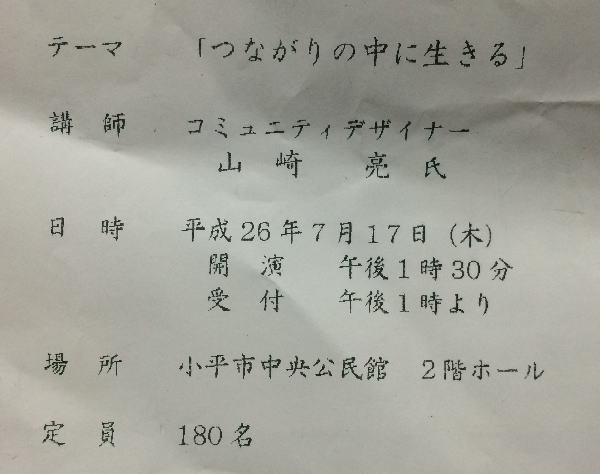 テーマ 「つながりの中に生きる」
講師 コミュニティデザイナー
山崎 亮氏
日時 平成26年7月17日(木)
開演 午後1時30分
受付 午後1時より
場所 小平市中央公民館 2階ホール
定員 180名